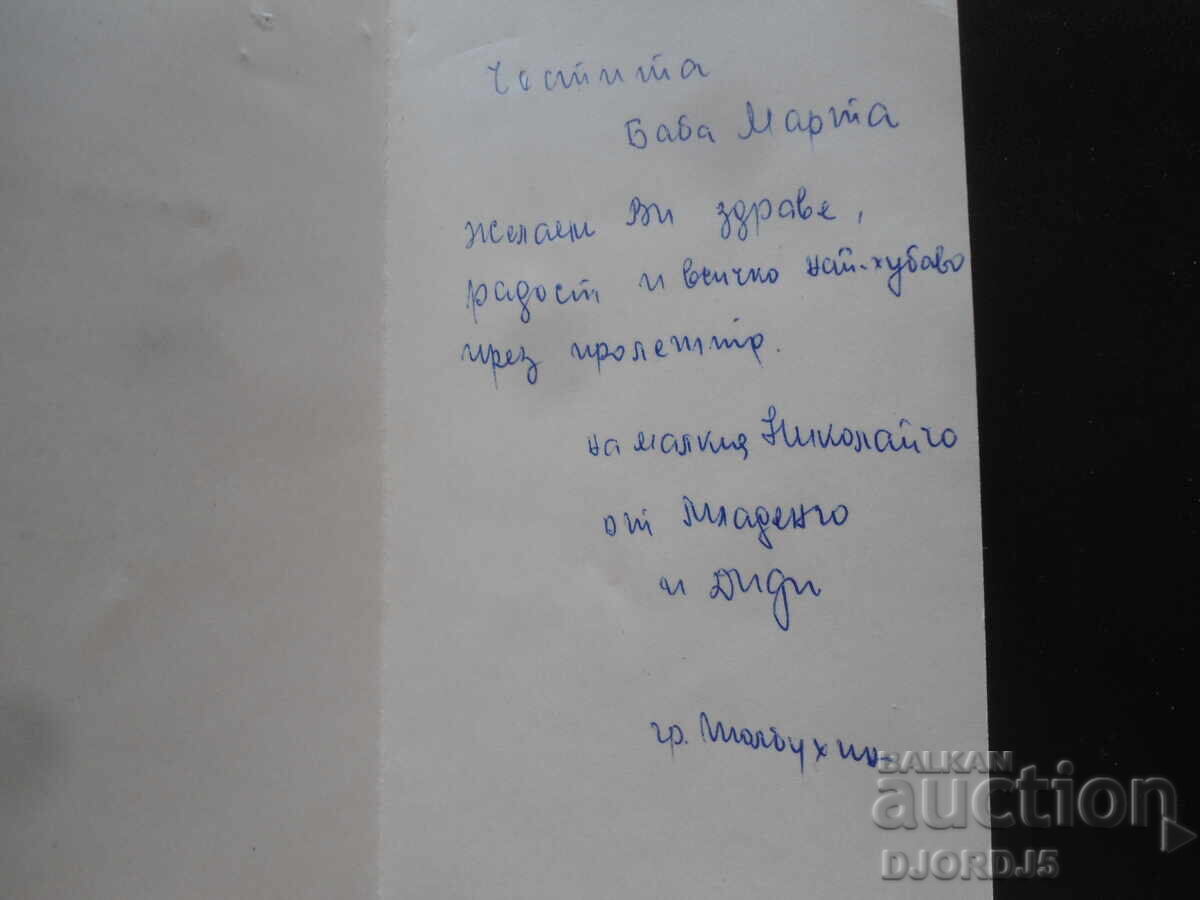 Честита
Баба Марта
желаем Ви здраве,
радост и всичко най-хубаво
през пролетта.
на малкия Николайчо
от Младенчо
и Диди
гр. Толбухин
BALKAN
auction
DJORDJ5